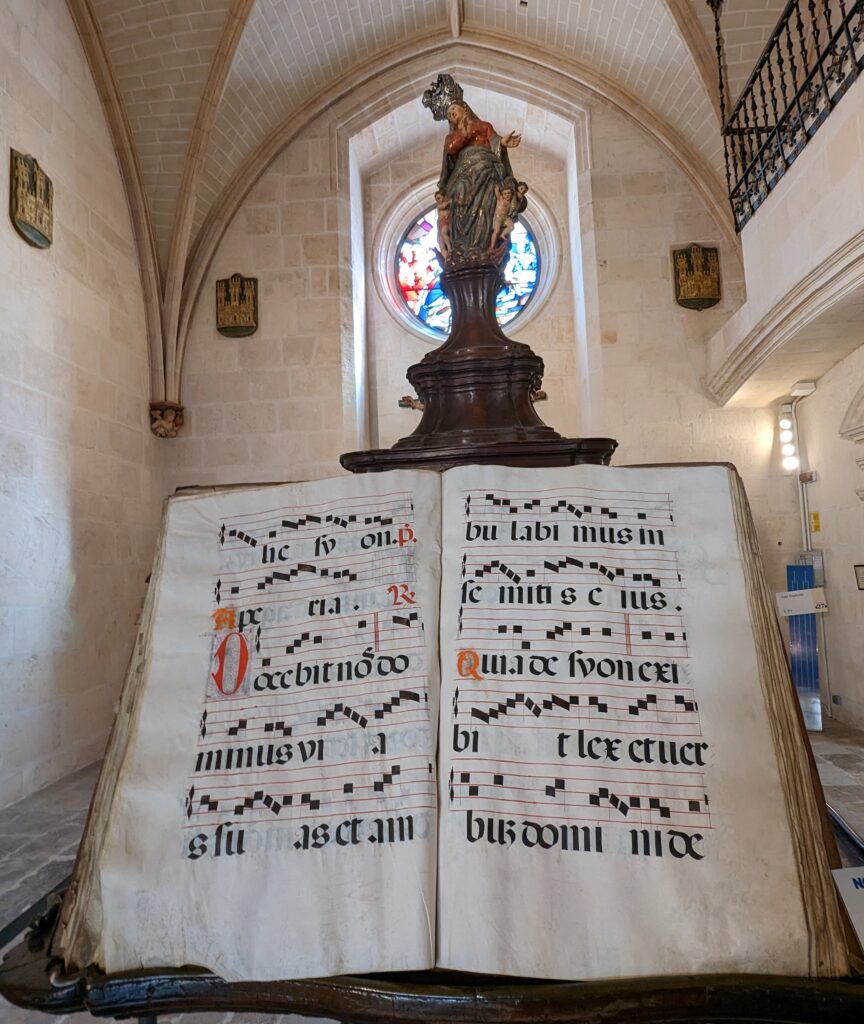 lie sy on. p̄.
Ape ria. R
Docebit nōs do
minus vi a
s su as et am
bu labi mus in
se miti s e ius.
Quia de syon exi
bi t lex et ver
buʒ domi ni de